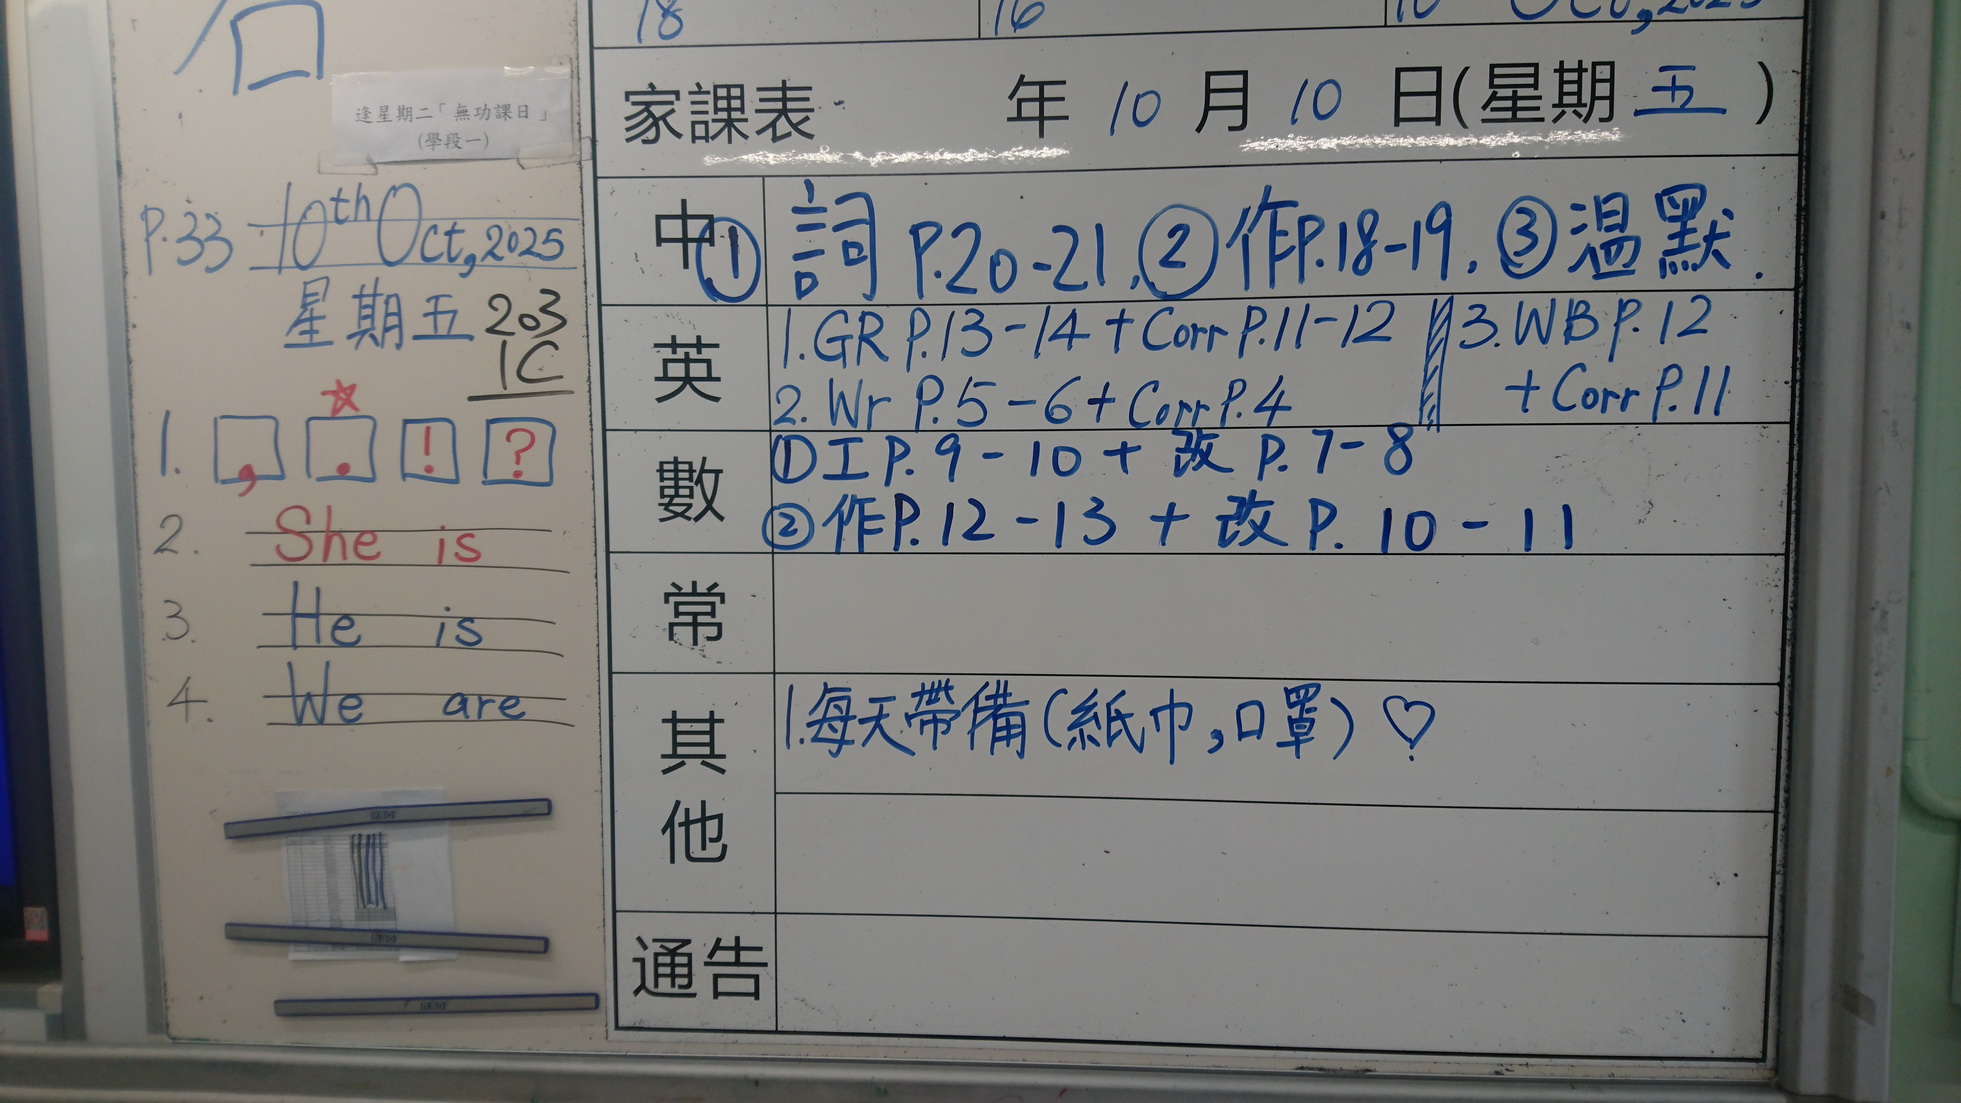 18 16 10 Oct, 2025
石
逢星期二「無功課日」
(學段一)
P.33 10th Oct, 2025
星期五 203
1C
1. , . ! ?
2. She is
3. He is
4. We are
家課表 年 10 月 10 日(星期 五 )
中 ① 詞 P.20-21. ② 作P.18-19. ③ 温默.
英 1. GR P.13-14 + Corr P.11-12 3. WB P.12
2. Wr P.5-6 + Corr P.4 + Corr P.11
數 ① 工 P.9-10 + 改 P.7-8
② 作P.12-13 + 改 P.10-11
常
其他 1. 每天帶備(紙巾,口罩) ♡
通告